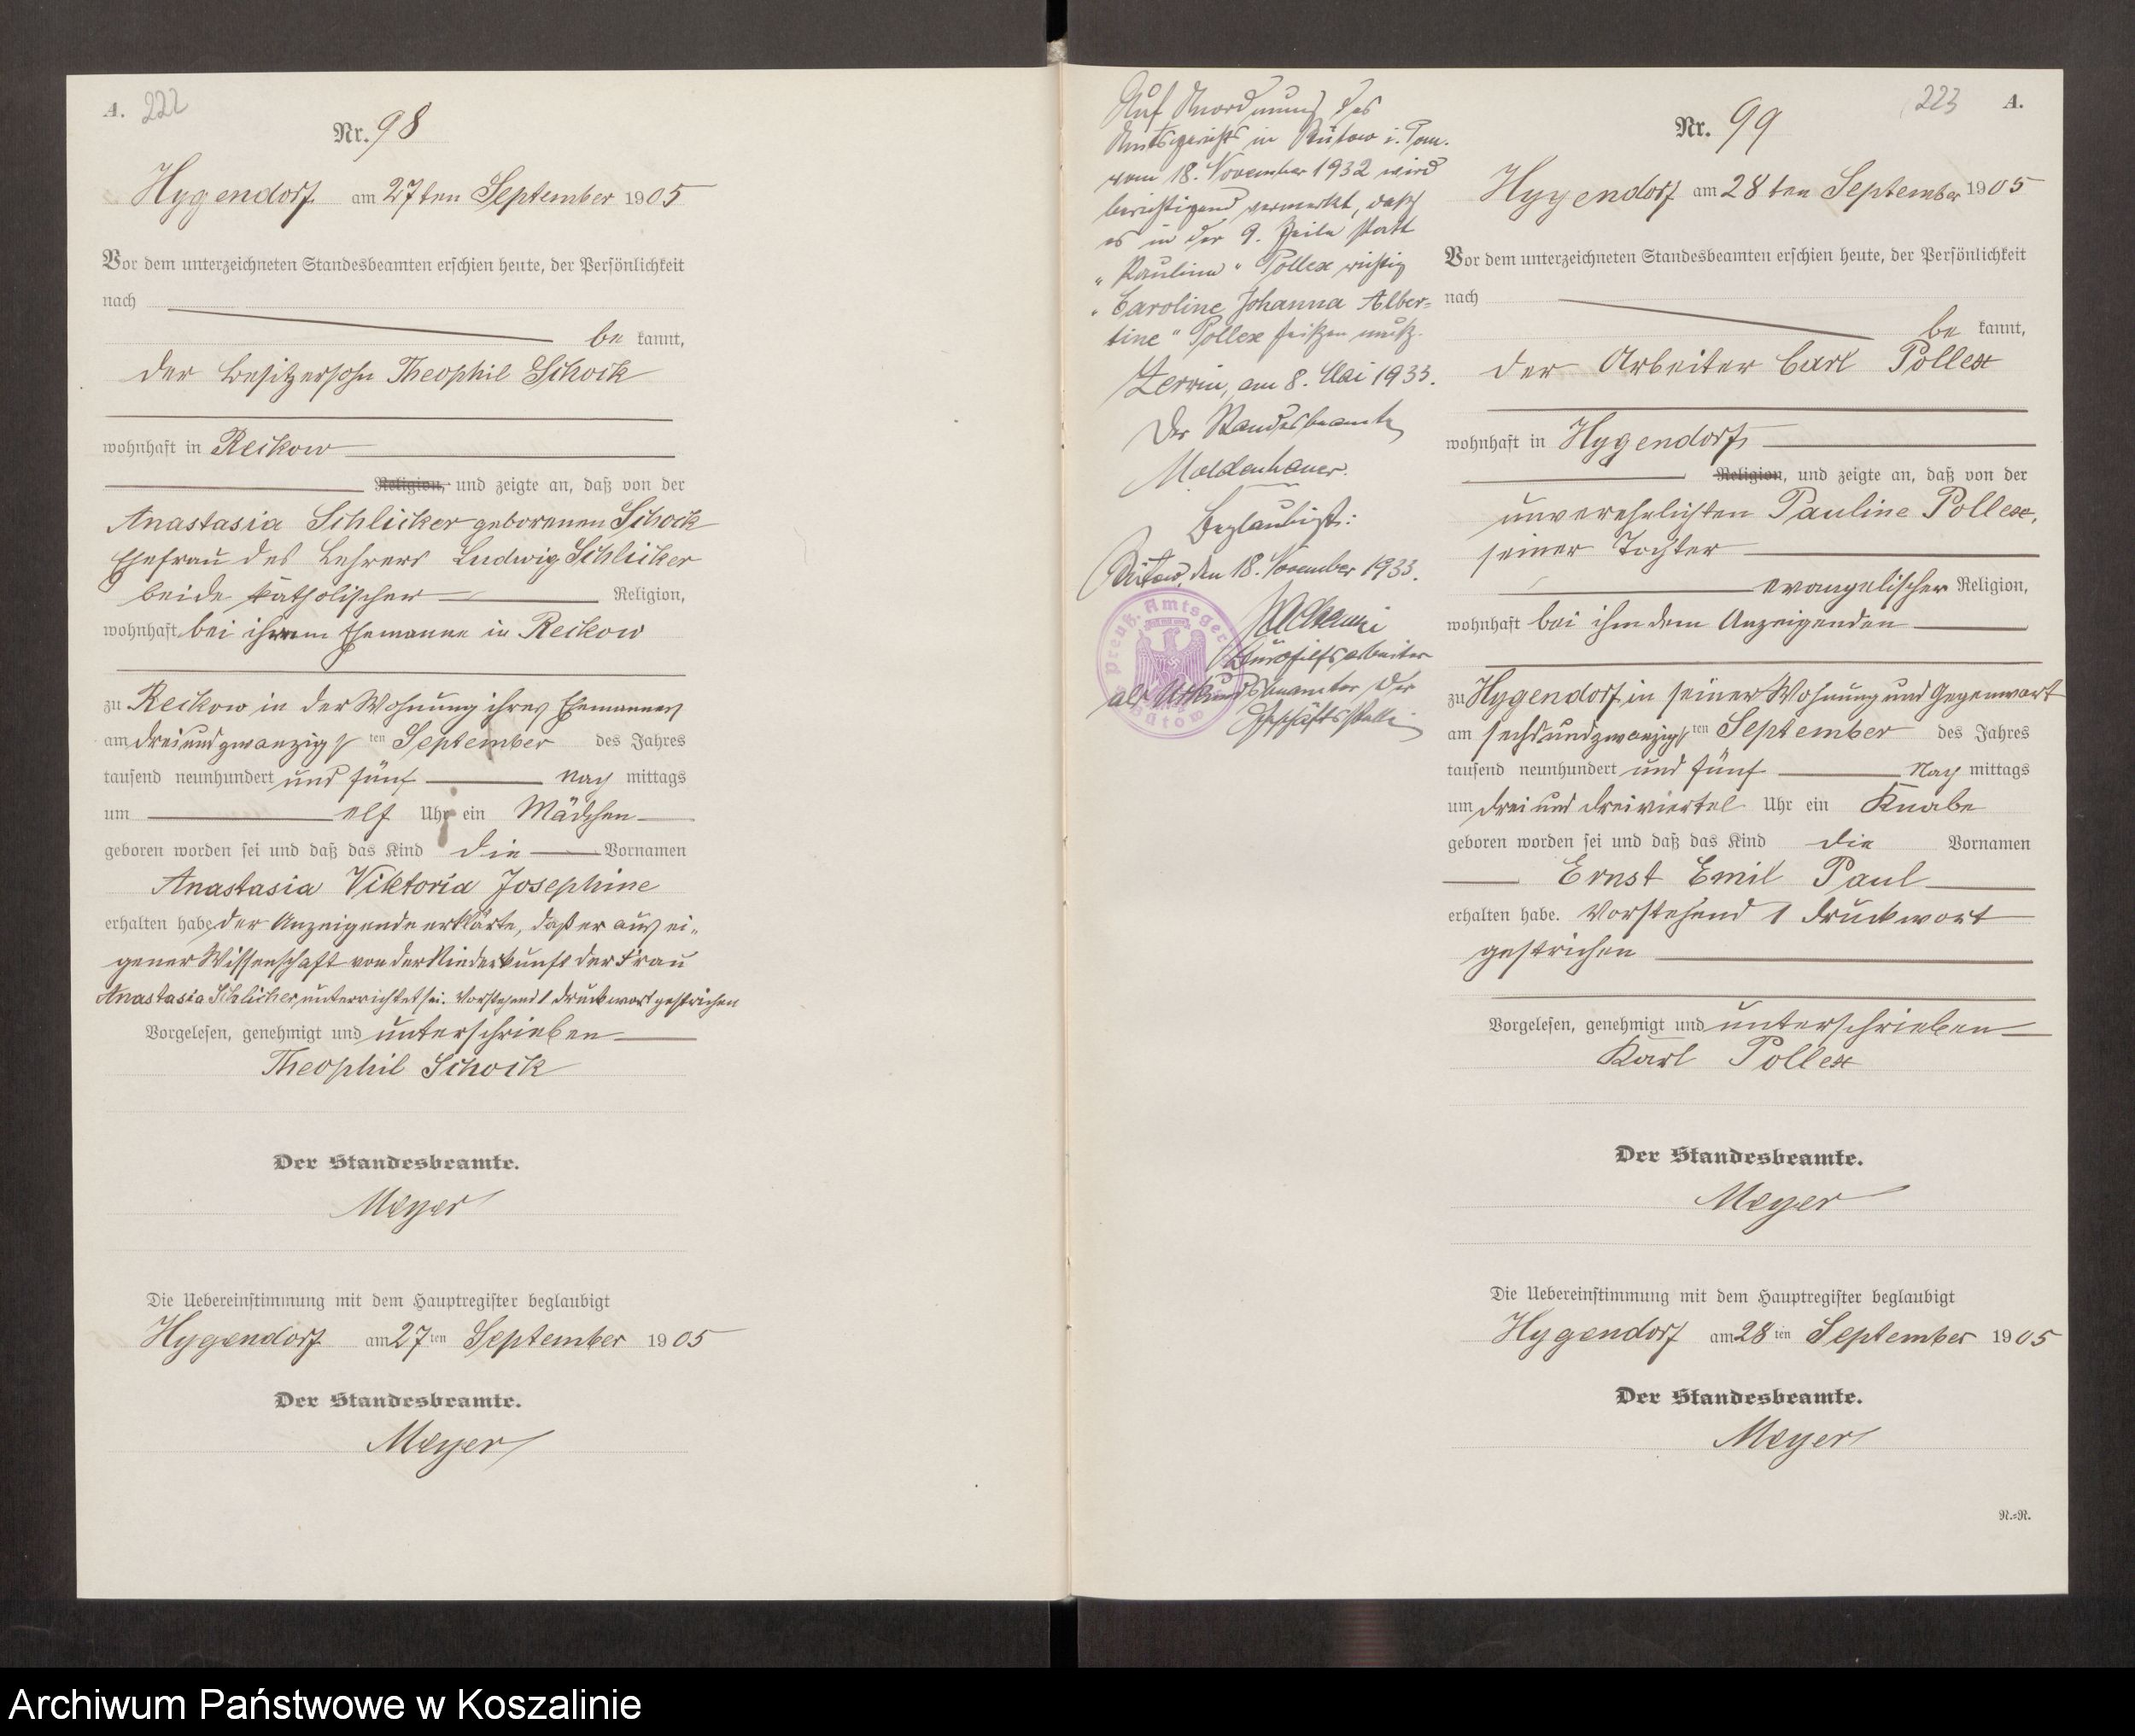 A. 222
Nr. 98
Hygendorf am 27ten September 1905
Vor dem unterzeichneten Standesbeamten erschien heute, der Persönlichkeit
nach
be kannt,
der Besitzersohn Theophil Schock
wohnhaft in Reckow
Religion, und zeigte an, daß von der
Anastasia Schlicker geborenen Schock
Ehefrau des Lehrers Ludwig Schlicker
beide katholischer Religion,
wohnhaft bei ihrem Ehemanne in Reckow
zu Reckow in der Wohnung ihres Ehemannes
am dreiundzwanzigs ten September des Jahres
tausend neunhundert und fünf nach mittags
um elf Uhr ein Mädchen
geboren worden sei und daß das Kind die Vornamen
Anastasia Viktoria Josephine
erhalten habe, der Anzeigende erklärte, daß er aus ei-
gener Wissenschaft von der Niederkunft der Frau
Anastasia Schlicker unterrichtet sei. Vorstehend 1 Druckwort gestrichen
Vorgelesen, genehmigt und unterschrieben
Theophil Schock
Der Standesbeamte.
Meyer
Die Uebereinstimmung mit dem Hauptregister beglaubigt
Hygendorf am 27ten September 1905
Der Standesbeamte.
Meyer
Auf Anordnung des
Amtsgerichts in Bütow i. Pom.
vom 18. November 1932 wird
berichtigend vermerkt, daß
es in der 9. Zeile statt
"Pauline" Pollex richtig
"Caroline Johanna Alber-
tine" Pollex heißen muß.
Zerrin, am 8. Mai 1933.
Der Standesbeamte
Moldenhauer.
Beglaubigt:
Bütow, den 18. November 1933.
Bürohilfsarbeiter
als Urkundsbeamter der
Geschäftsstelle
Preuß. Amtsger
Bütow
223 A.
Nr. 99
Hygendorf am 28ten September 1905
Vor dem unterzeichneten Standesbeamten erschien heute, der Persönlichkeit
nach
be kannt,
der Arbeiter Carl Pollex
wohnhaft in Hygendorf
Religion, und zeigte an, daß von der
unverehelichten Pauline Pollex,
seiner Tochter
evangelischer Religion,
wohnhaft bei ihm dem Anzeigenden
zu Hygendorf in seiner Wohnung und Gegenwart
am sechsundzwanzigs ten September des Jahres
tausend neunhundert und fünf Nach mittags
um drei und dreiviertel Uhr ein Knabe
geboren worden sei und daß das Kind die Vornamen
Ernst Emil Paul
erhalten habe. Vorstehend 1 Druckwort
gestrichen
Vorgelesen, genehmigt und unterschrieben
Karl Pollex
Der Standesbeamte.
Meyer
Die Uebereinstimmung mit dem Hauptregister beglaubigt
Hygendorf am 28ten September 1905
Der Standesbeamte.
Meyer
N.=N.
Archiwum Państwowe w Koszalinie